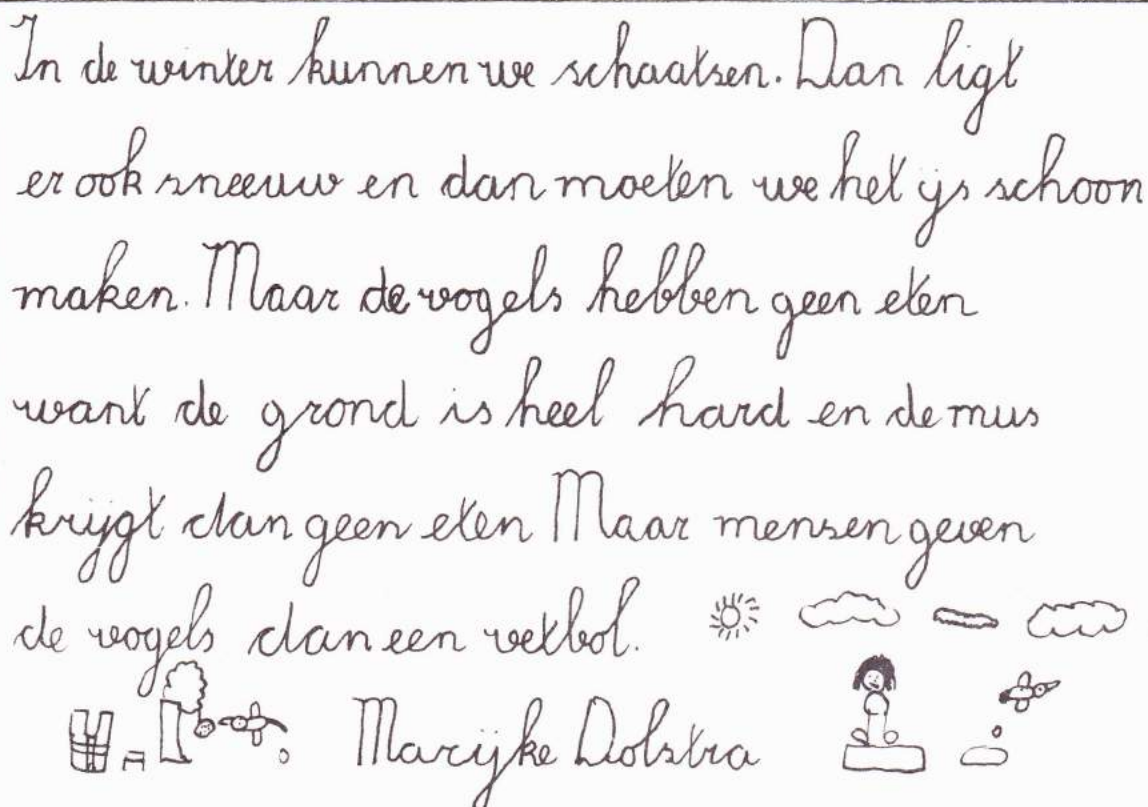 In de winter kunnen we schaatsen. Dan ligt
er ook sneeuw en dan moeten we het ijs schoon
maken. Maar de vogels hebben geen eten
want de grond is heel hard en de mus
krijgt dan geen eten Maar mensen geven
de vogels dan een vetbol.
Marijke Dolstra